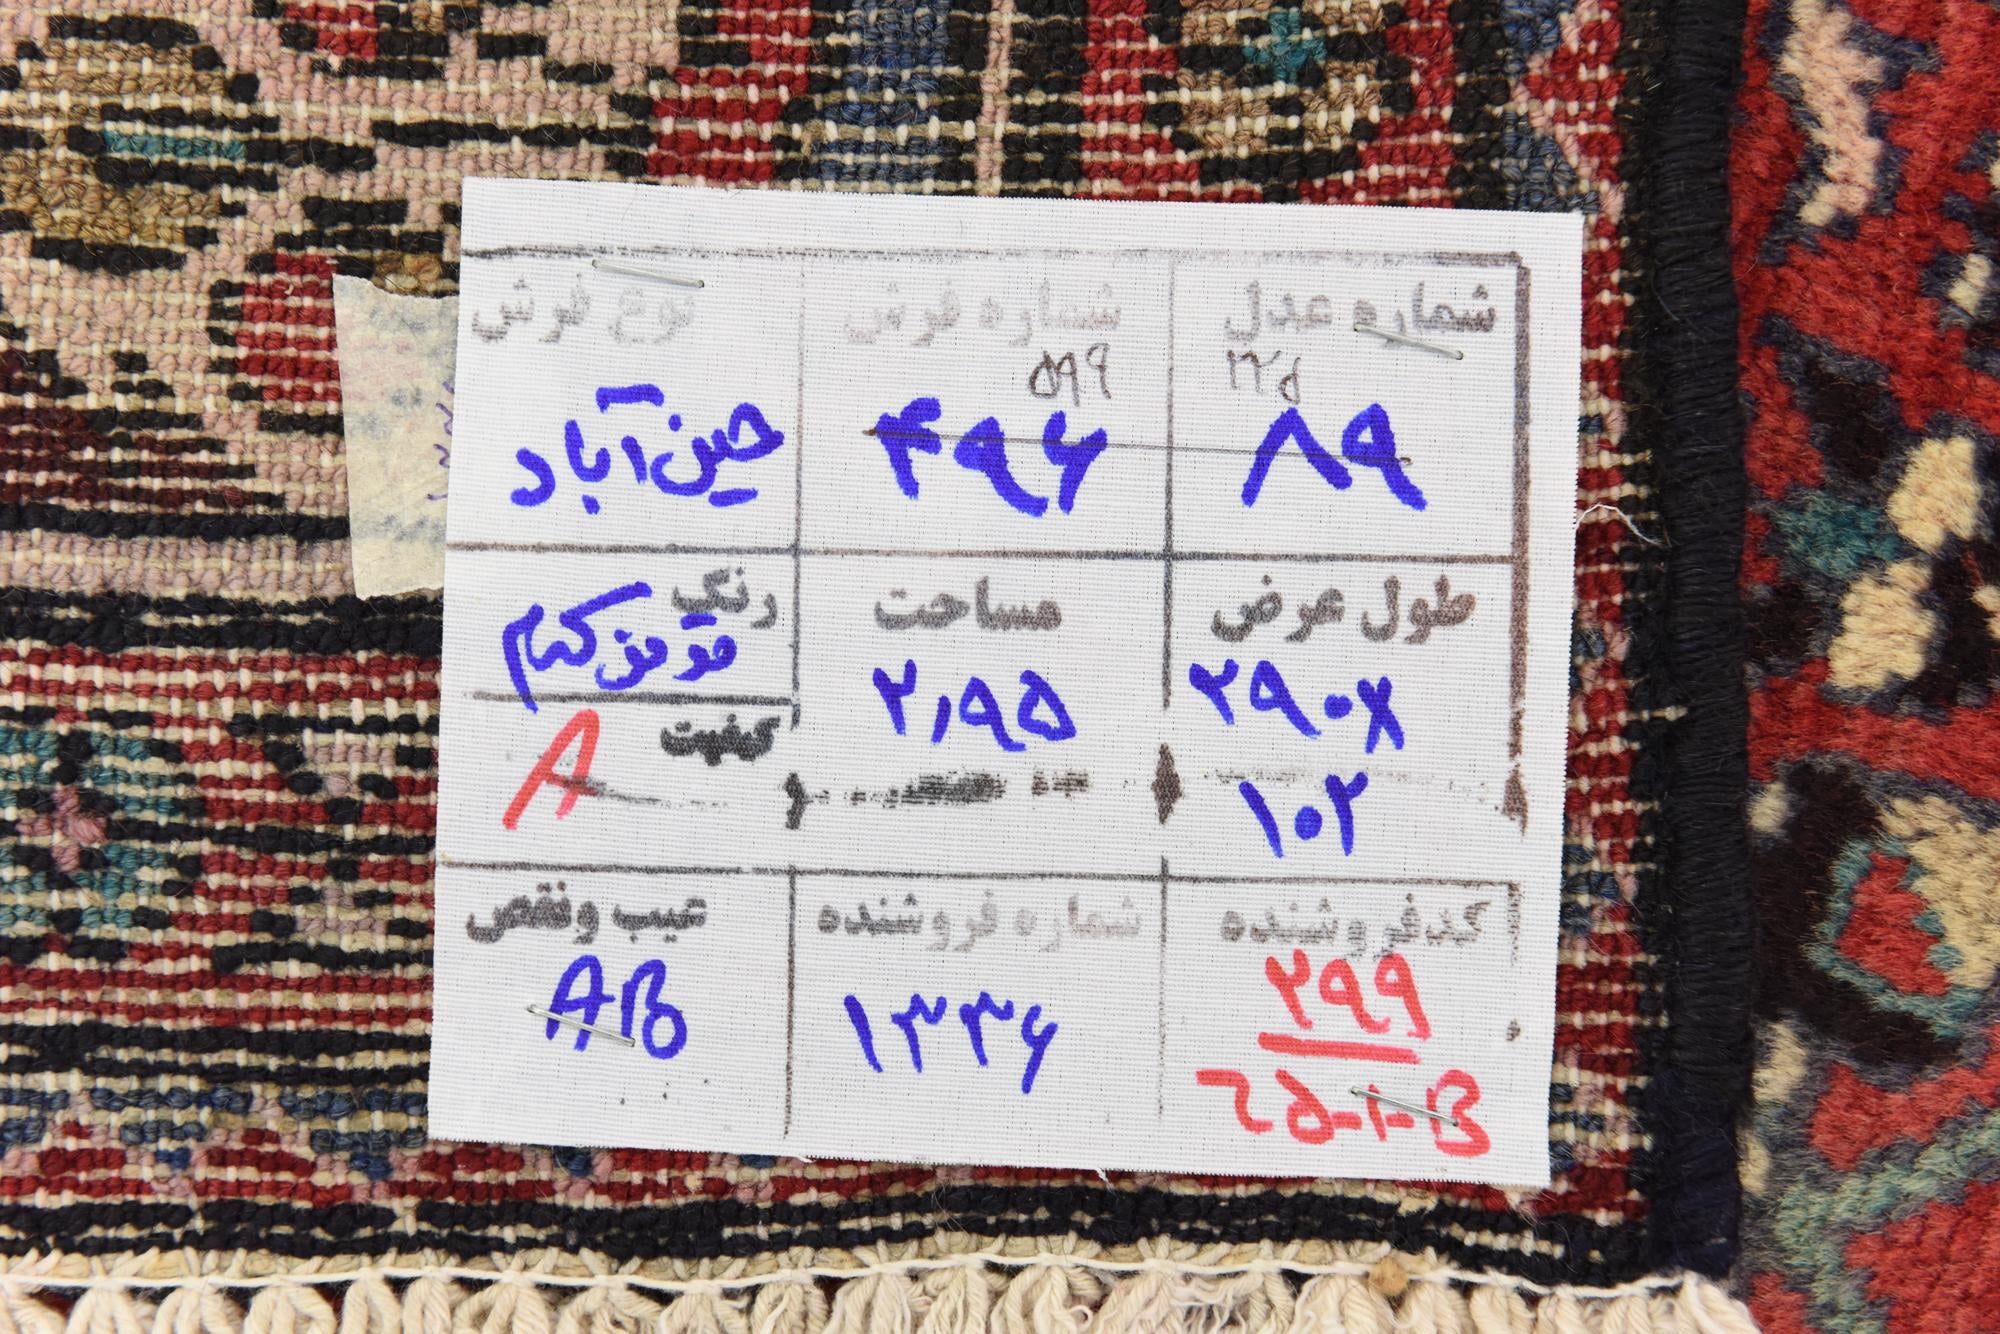 شماره عدل
شماره فرش
نوع فرش
۵۹۹
۸۹
۴۹۶
حسین‌آباد
طول عرض
مساحت
رنگ
۲۹۰x
۱۰۲
۲,۹۵
کیفیت
A
کد فروشنده
شماره فروشنده
عیب و نقص
۲۹۹
25-1-B
۱۳۳۶
AB